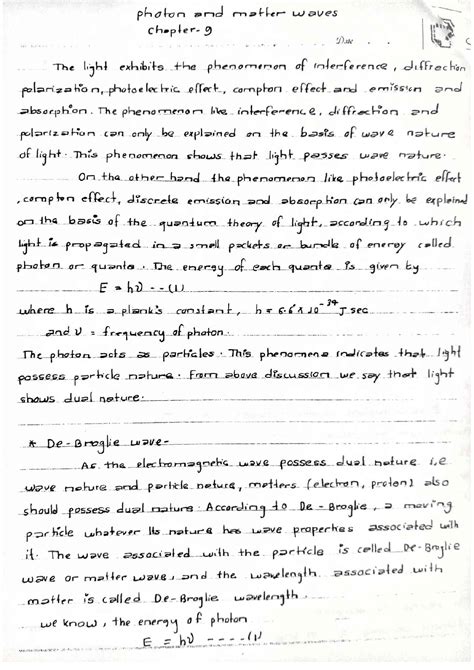 photon and matter waves
chapter-9
Date
The light exhibits the phenomenon of interference, diffraction
polarization, photoelectric effect, compton effect and emission and
absorption. The phenomenon like interference, diffraction and
polarization can only be explained on the basis of wave nature
of light. This phenomenon shows that light posses wave nature.
On the other hand the phenomenon like photoelectric effect
, compton effect, discrete emission and absorption can only be explained
on the basis of the quantum theory of light, according to which
light is propagated in a small packets or bundle of energy called
photon or quanta. The energy of each quanta is given by
E = hυ --(1)
where h is a plank's constant, h = 6.61 × 10⁻³⁴ J sec
and υ = frequency of photon.
The photon acts as particles. This phenomena indicates that light
possess particle nature. From above discussion we say that light
shows dual nature.
* De-Broglie wave-
As the electromagnetic wave possess dual nature i.e
wave nature and particle nature, matters (electron, proton) also
should possess dual nature. According to De-Broglie, a moving
particle whatever its nature has wave properties associated with
it. The wave associated with the particle is called De-Broglie
wave or matter wave, and the wavelength associated with
matter is called De-Broglie wavelength.
we know, the energy of photon
E = hυ ----(1)